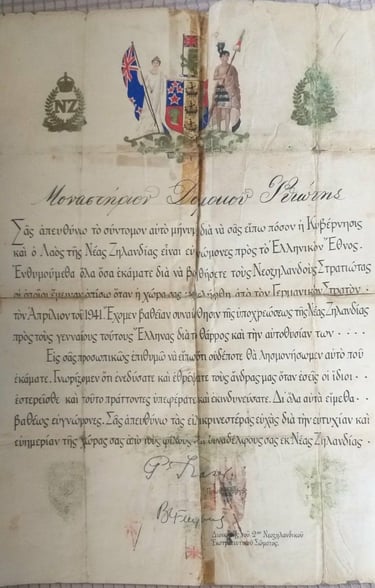 NZ
Μοναστήριον
Σᾶς ἀπευθύνω τὸ σύντομον αὐτὸ μήνυμα διὰ νὰ σᾶς εἴπω πόσον ἡ Κυβέρνησις
καὶ ὁ Λαὸς τῆς Νέας Ζηλανδίας εἶναι εὐγνώμονες πρὸς τὸ Ἑλληνικὸν Ἔθνος.
Ἐνθυμούμεθα ὅλα ὅσα ἐκάματε διὰ νὰ βοηθήσετε τοὺς Νεοζηλανδοὺς Στρατιώτας
οἱ ὁποῖοι ὀπίσω ὅταν ἡ χώρα σας ἀπὸ τὸν Γερμανικὸν Στρατὸν
τὸν Ἀπρίλιον τοῦ 1941. Ἔχομεν βαθεῖαν συναίσθησιν τῆς ὑποχρεώσεως τῆς Νέας Ζηλανδίας
πρὸς τοὺς γενναίους τούτους Ἕλληνας διὰ τὸ θάρρος καὶ τὴν αὐτοθυσίαν των . . . .
Εἰς σᾶς προσωπικῶς ἐπιθυμῶ νὰ εἴπω ὅτι οὐδέποτε θὰ λησμονήσωμεν αὐτὸ ποὺ
ἐκάματε. Γνωρίζομεν ὅτι ἐνεδύσατε καὶ ἐθρέψατε τοὺς ἄνδρας μας ὅταν ἐσεῖς οἱ ἴδιοι . . . .
ἐστερεῖσθε καὶ τοῦτο πράττοντες ὑπεφέρατε καὶ ἐκινδυνεύσατε. Δι' ὅλα αὐτὰ εἴμεθα . .
βαθέως εὐγνώμονες. Σᾶς ἀπευθύνω τὰς εἰλικρινεστέρας εὐχὰς διὰ τὴν εὐτυχίαν καὶ
εὐημερίαν τῆς χώρας σας ἀπὸ τοὺς φίλους συναδέλφους σας ἐκ Νέας Ζηλανδίας .
Διοικητὴς τοῦ 2ου Νεοζηλανδικοῦ
Ἐκστρατευτικοῦ Σώματος.